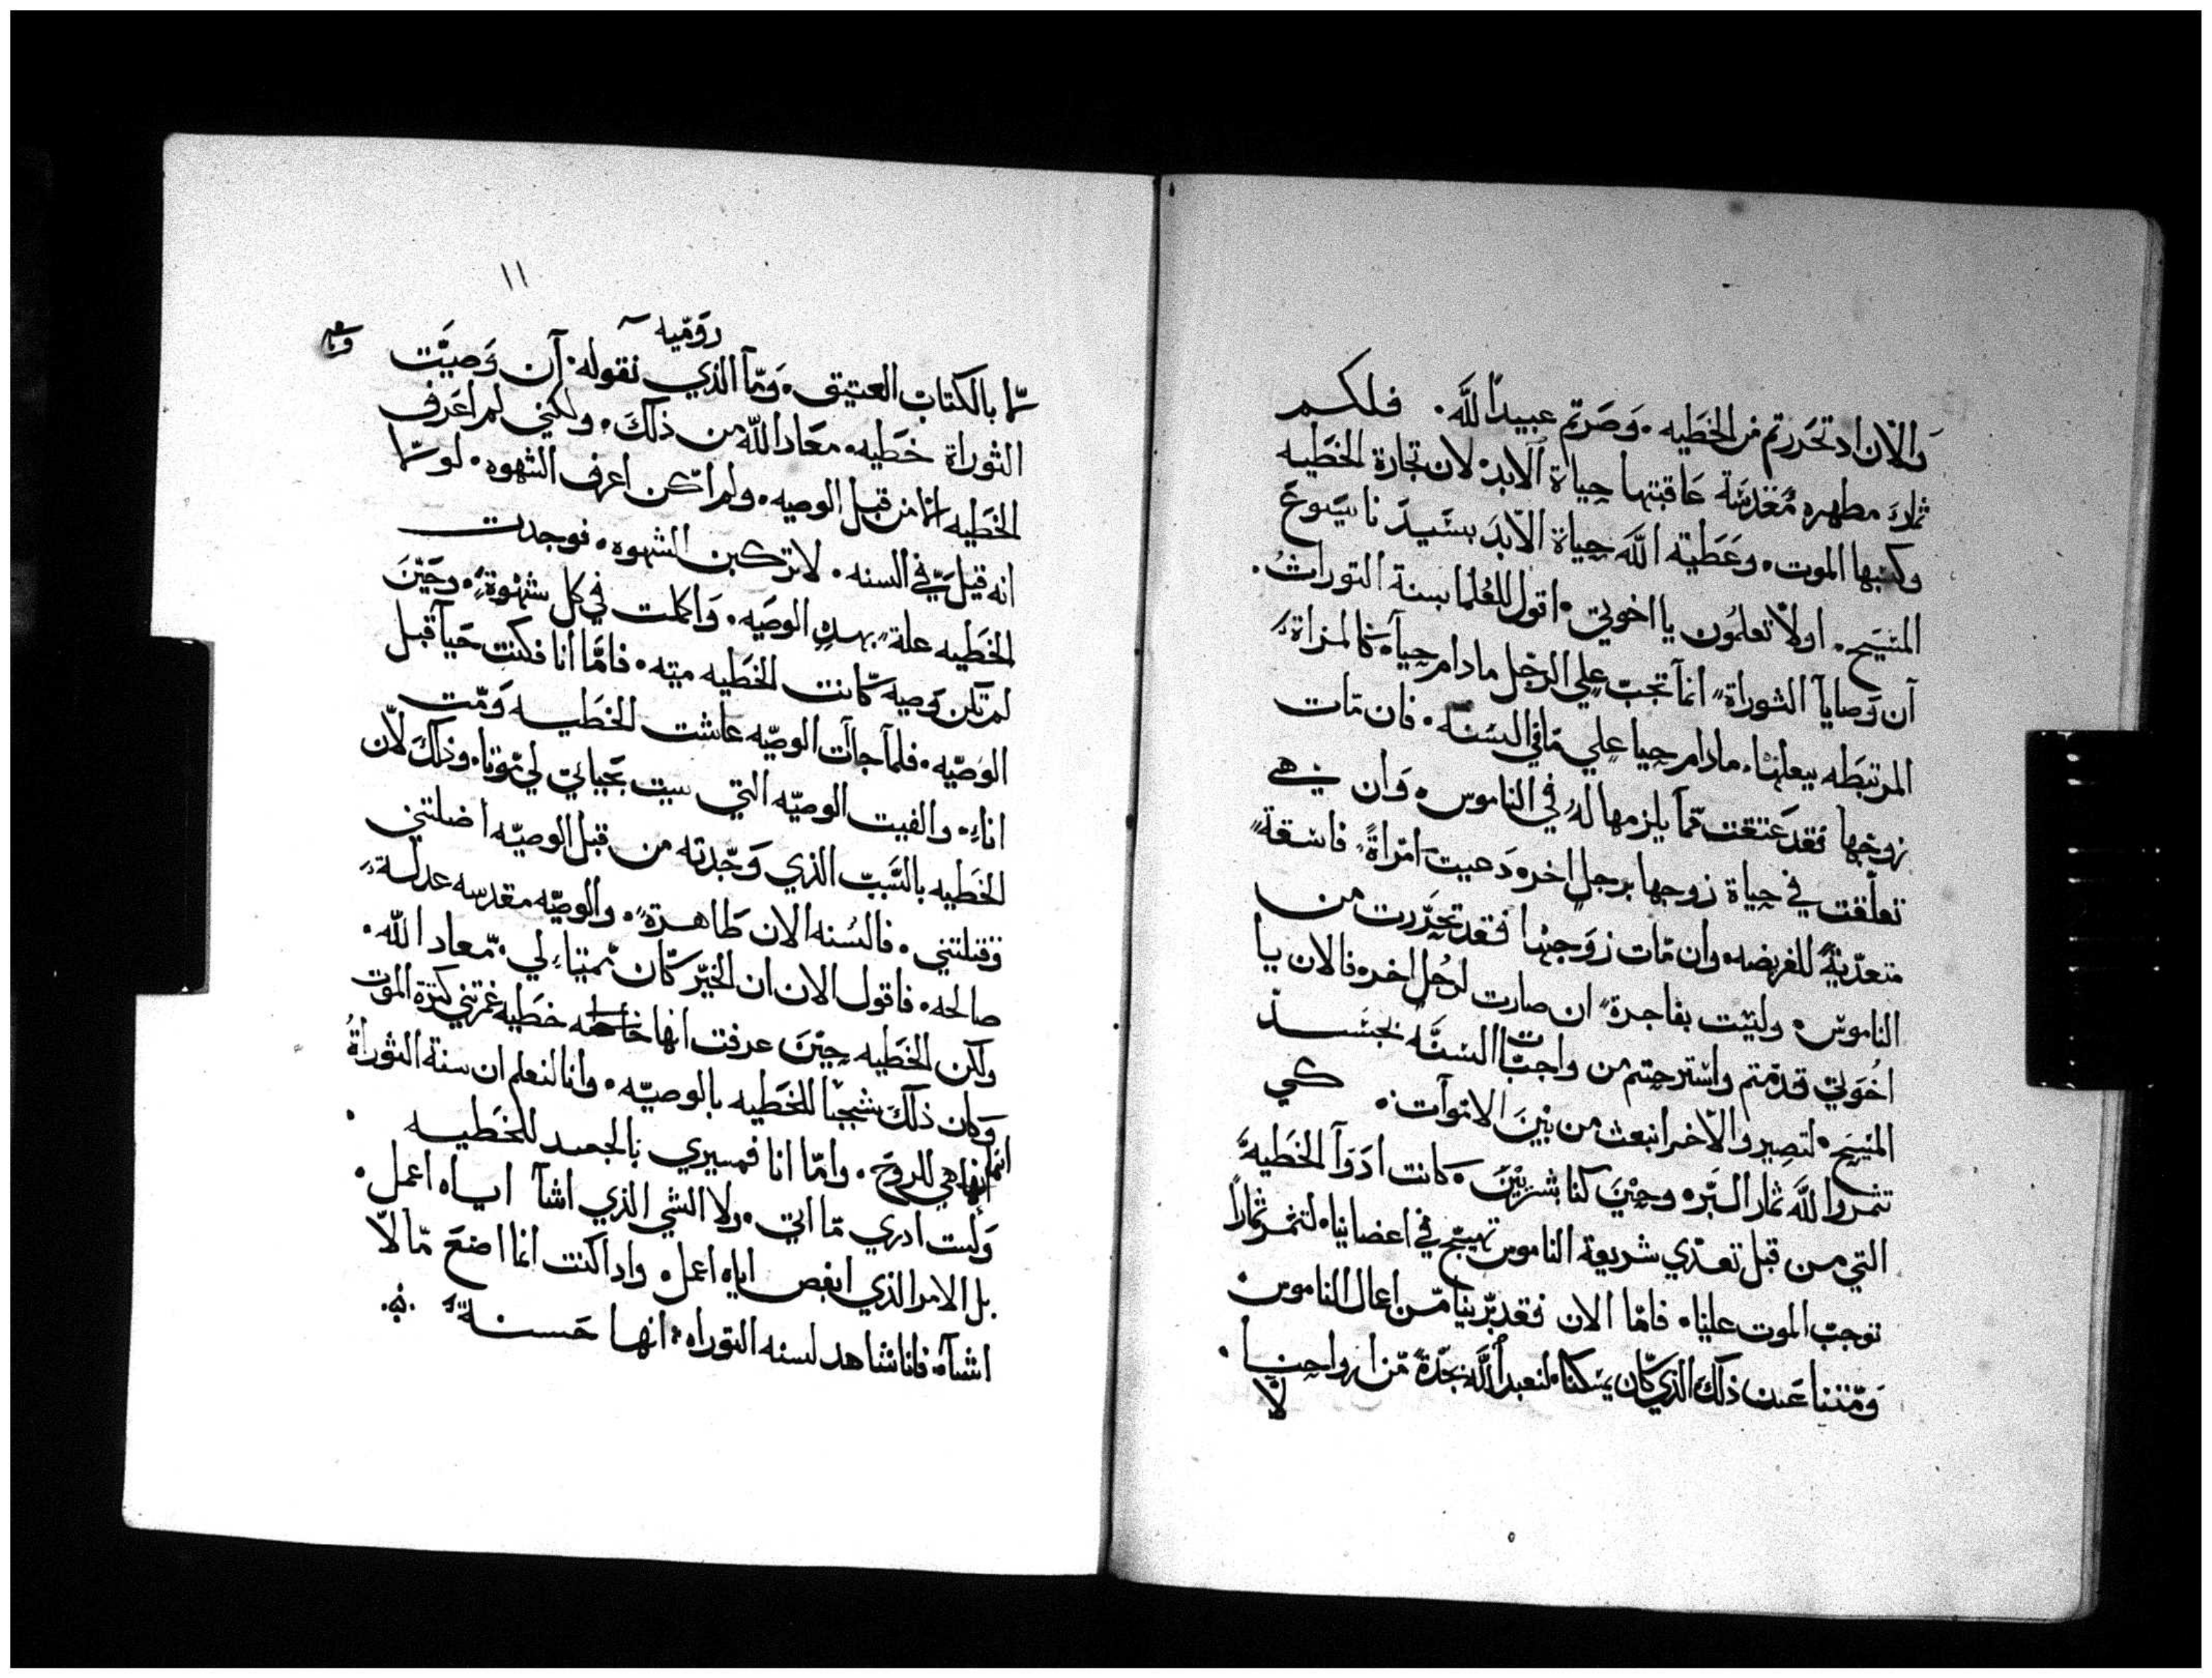 والان اد تحررتم من الخطيه. وصرتم عبيداً لله. فلكم
ثمار مطهره مقدسة عاقبتها حياة الابد. لان تجارة الخطيه
وكسبها الموت. وعطية الله حياة الابد بسيدنا يسوع
المسيح. اولا تعلمون يا اخوتي. اقول للعلما بسنة التوراة.
ان وصايا التوراة انما تجب علي الرجل مادام حيا. كالمراة
المرتبطه ببعلها. مادام حيا علي ما في السنه. فان مات
زوجها فقد عتقت مما يلزمها له في الناموس. وان هي
تعلقت في حياة زوجها برجل اخر. دعيت امراة فاسقة
متعدية للفريضه. وان مات زوجها فقد تحررت من
الناموس. وليست بفاجرة ان صارت لرجل اخر. فالان يا
اخوتي قد متم واسترحتم من واجبات السنه بجسد
المسيح. لتصيروا لاخر انبعث من بين الاموات. كي
تثمروا لله ثمار البر. وحين كنا بشريين. كانت ادوآ الخطيه
التي من قبل تعدي شريعة الناموس تهيج في اعضاينا. لتثمر ثماراً
توجب الموت علينا. فاما الان فقد برينا من اعمال الناموس
ومتنا عن ذلك الذي كان يمسكنا. لنعبد الله بجدة من ارواحنا.
لا
١١
رومية
لا بالكتاب العتيق. وما الذي نقوله. ان وصيت
التوراة خطيه. معاد الله من ذلك. ولكني لم اعرف
الخطيه الا من قبل الوصيه. ولم اكن اعرف الشهوه. لولا
انه قيل لي في السنه. لا تركبن الشهوه. فوجدت
الخطيه علة بهده الوصيه. واكملت في كل شهوة. وحين
لم تكن وصيه كانت الخطيه ميته. فاما انا فكنت حيا قبل
الوصيه. فلما جآت الوصيه عاشت الخطيه ومت
انا. والفيت الوصيه التي سيت بحياتي لي موتا. وذلك لان
الخطيه بالسبب الذي وجدته من قبل الوصيه اضلتني
وقتلتني. فالسنه الان طاهرة. والوصيه مقدسه عدلة
صالحه. فاقول الان ان الخير كان مميتا لي. معاد الله.
ولكن الخطيه حين عرفت انها خطيه غمرتني كثرة الموت
وكان ذلك شجبا للخطيه بالوصيه. وانا لنعلم ان سنة التوراة
انما هي للروح. واما انا فمسيري بالجسد للخطيه
ولست ادري ما اتي. ولا الشي الذي اشآ اياه اعمل.
بل الامر الذي ابغض اياه اعمل. وادا كنت انما اصنع ما لا
اشآه. فانا شاهد لسنه التوراه. انها حسنة